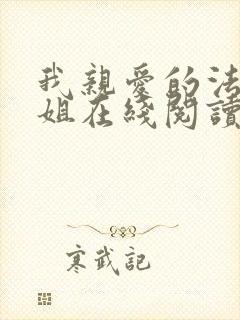 我親愛的法
姐在綫閱讀
寒武記